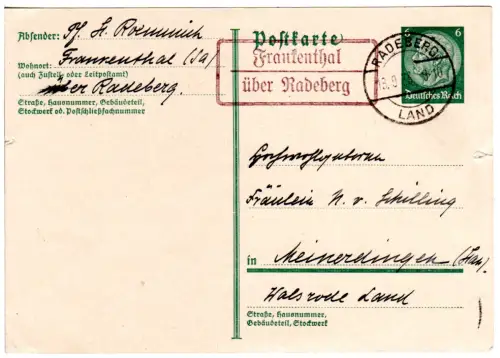 Absender: Pf. H. Roemmich
Wohnort: Frankenthal (Sa)
(auch Zustell- oder Leitpostamt)
über Radeberg.
Straße, Hausnummer, Gebäudeteil,
Stockwerk od. Postschließfachnummer
Postkarte
Frankenthal
über Radeberg
RADEBERG
LAND
6
6
Deutsches Reich
Hochwohlgeboren
Fräulein N. v. Schilling
in Meinerdingen (Han.)
Walsrode Land
Straße, Hausnummer,
Gebäudeteil, Stockwerk